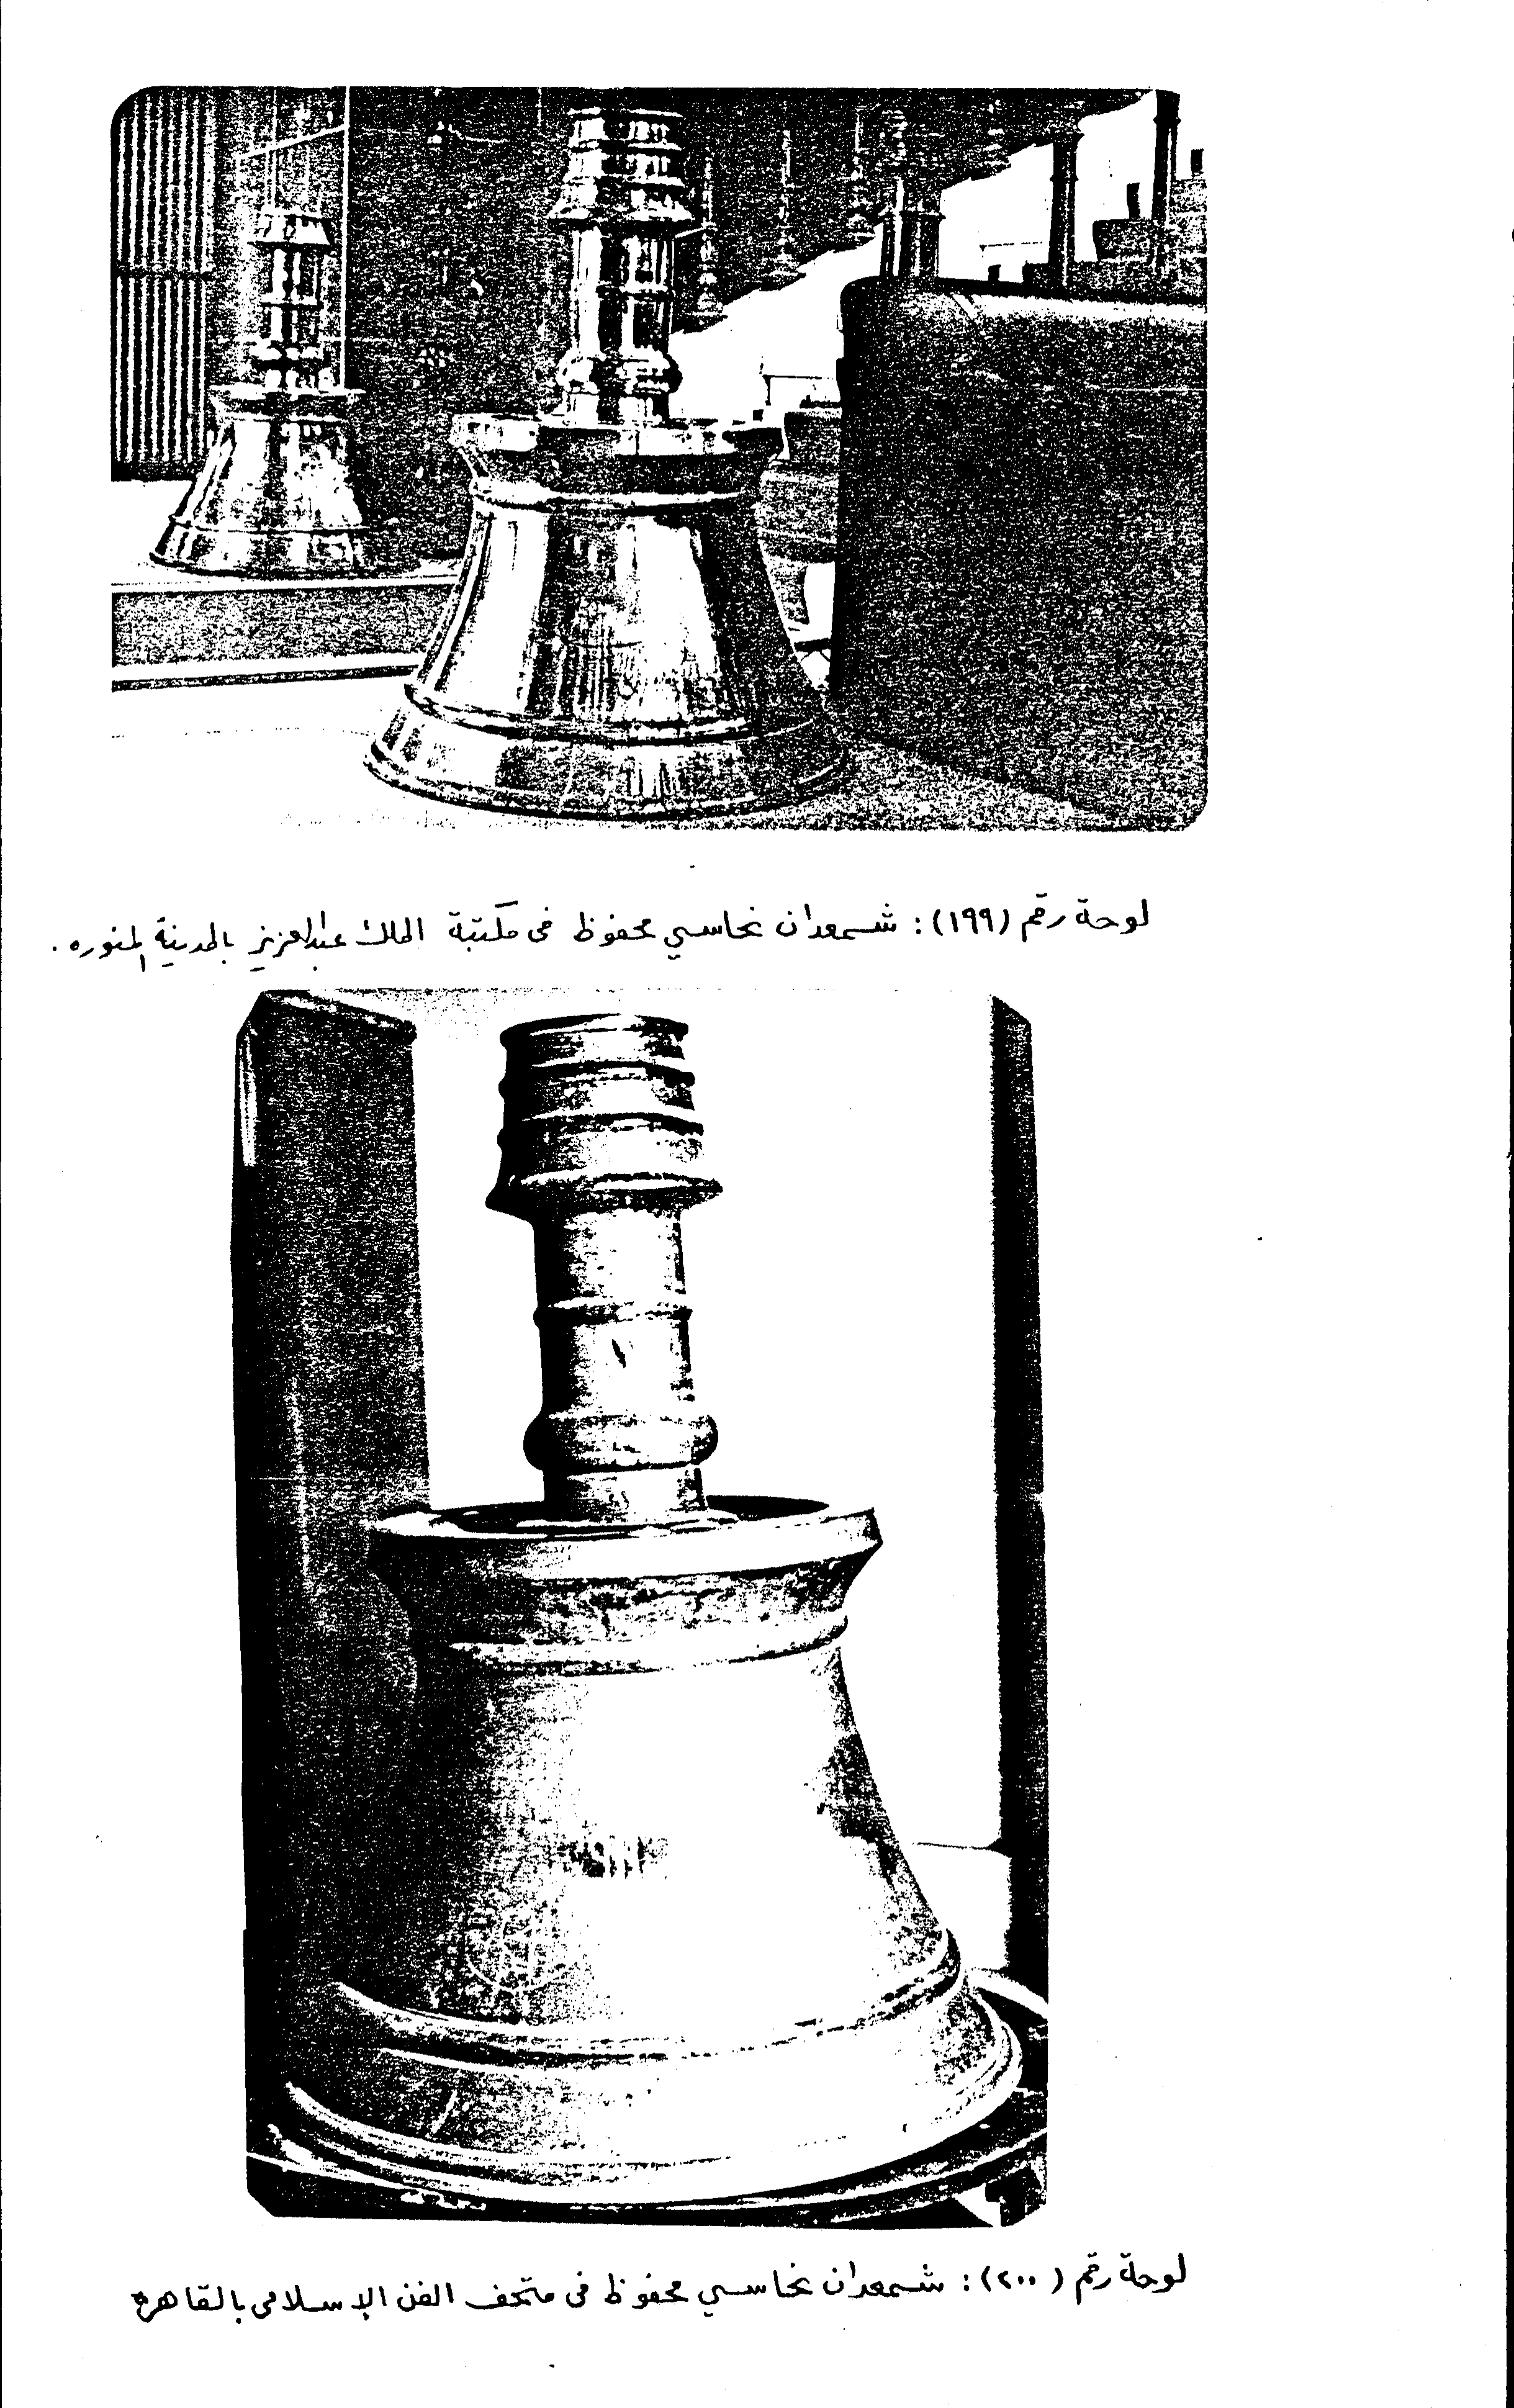 لوحة رقم (١٩٩): شمعدان نحاسي محفوظ فى مكتبة الملك عبدالعزيز بالمدينة المنوره.
لوحة رقم (٢٠٠): شمعدان نحاسي محفوظ فى متحف الفن الإسلامى بالقاهرة